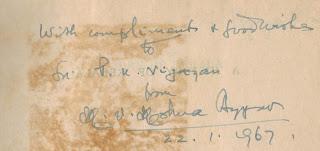 With compliments & good wishes
to
Sri P. K. Vijayan
from
K. V. Krishna Ayyar
22. 1. 1967.